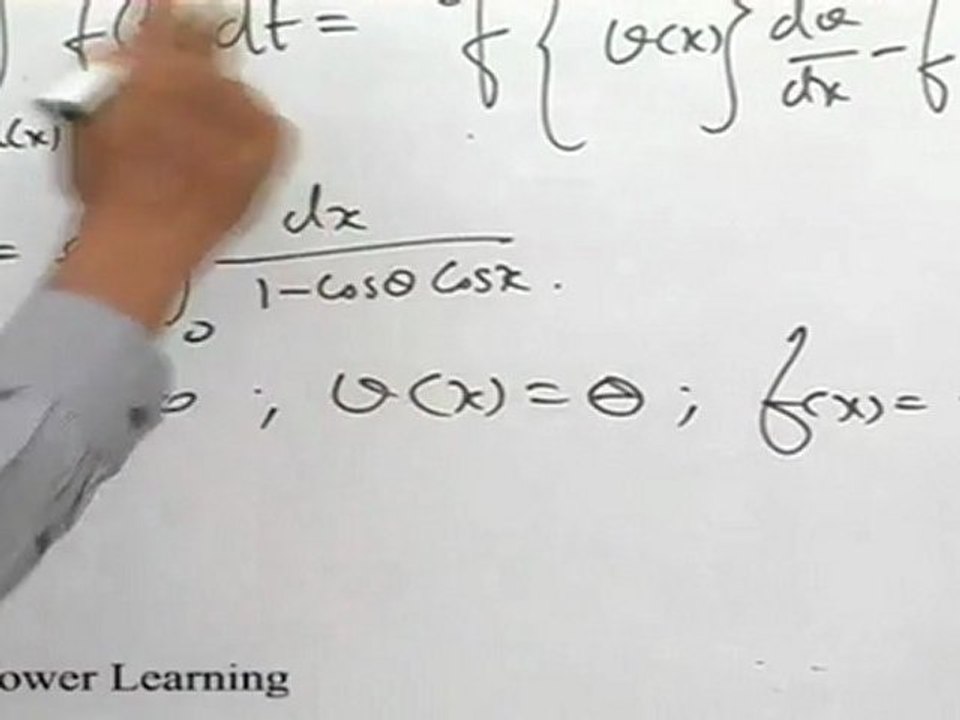 f( dt = f { v(x) } dv/dx - f
(x)
= dx / 1 - cosθ cosx .
0
; v(x) = θ ; f(x) =
ower Learning